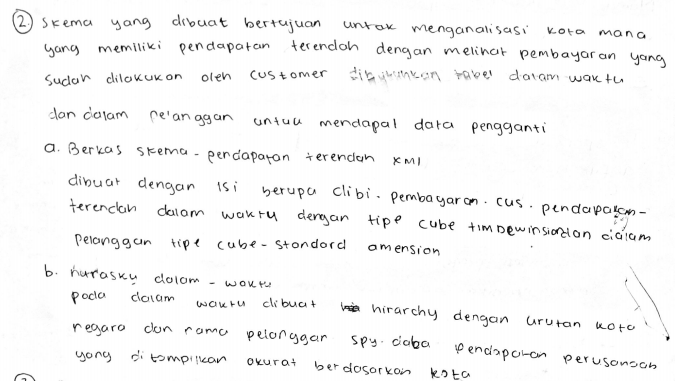 ② Skema yang dibuat bertujuan untuk menganalisasi kota mana
yang memiliki pendapatan terendah dengan melihat pembayaran yang
sudah dilakukan oleh customer dibutuhkan tabel dalam waktu
dan dalam pelanggan untuk mendapat data pengganti
a. Berkas skema - pendapatan terendah XMI
dibuat dengan isi berupa clibi. pembayaran. cus. pendapatan -
terendah dalam waktu dengan tipe cube dalam
pelanggan tipe cube - standard amension
b. dalam - waktu
pada dalam waktu dibuat hirarchy dengan urutan kota
negara dan nama pelanggan spy. data pendapatan perusahaan
yang ditampilkan akurat berdasarkan kota